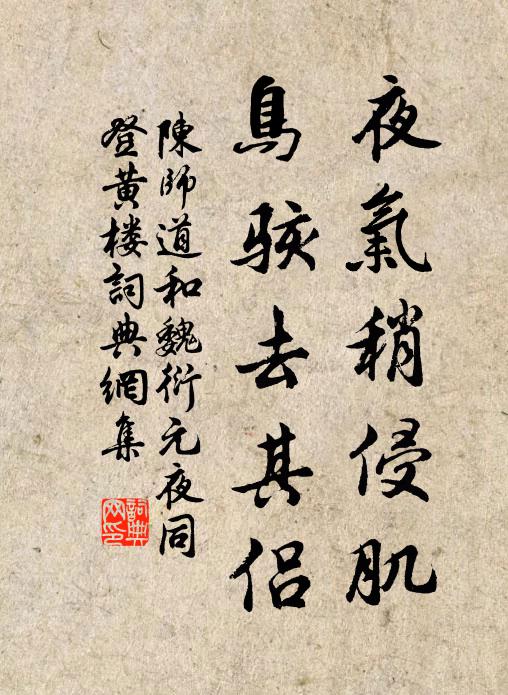 夜氣稍侵肌
鳥駭去其侶
陳師道和魏衍元夜同
登黃楼詞典網集
詞典
网印